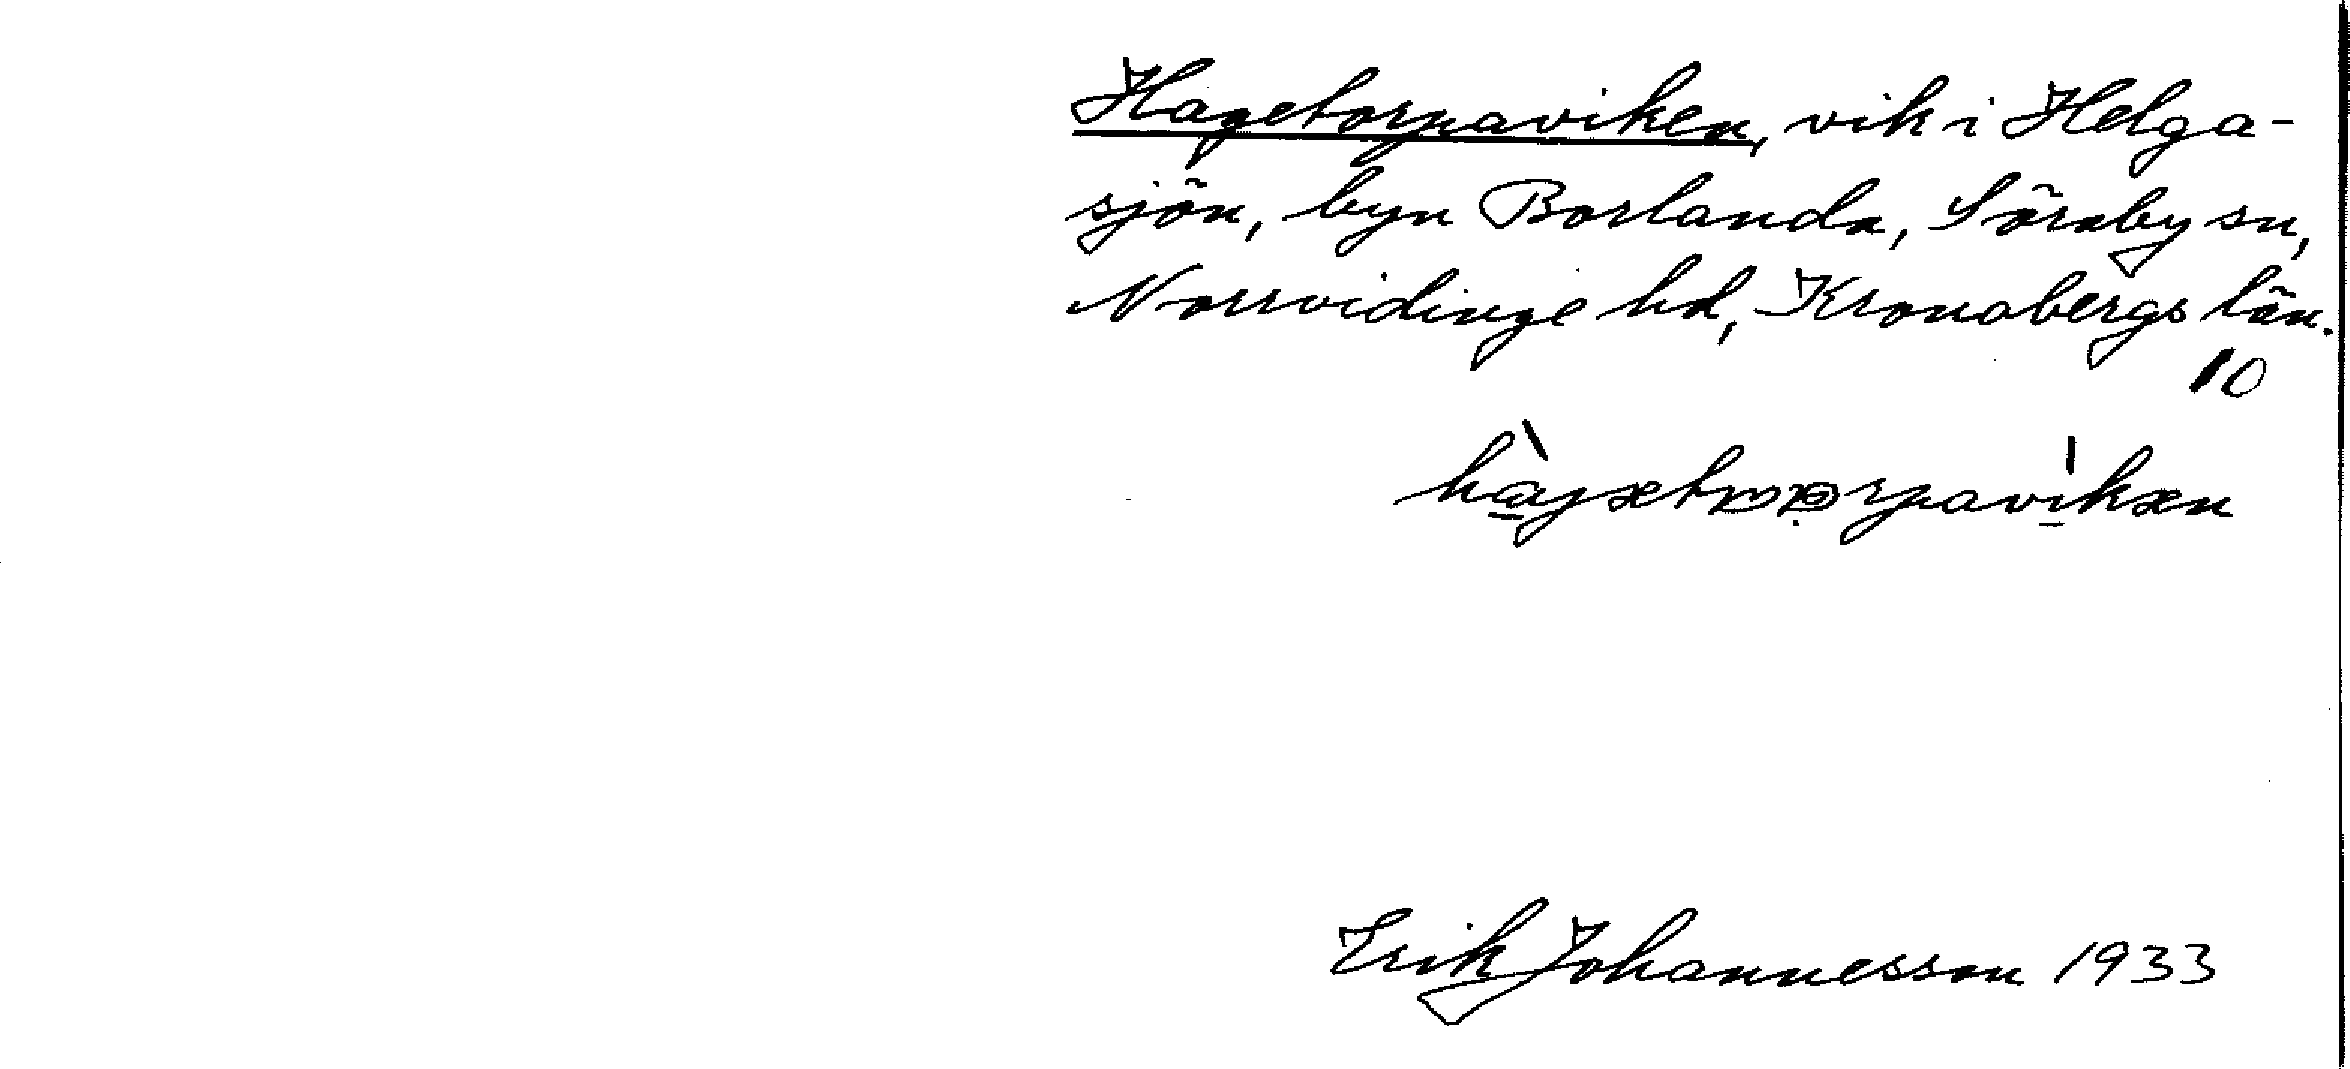 Hagetorpaviken, vik i Helga-
sjön, byn Borlanda, Söraby sn,
Norrvidinge hd, Kronobergs län.
10
Erik Johannesson 1933